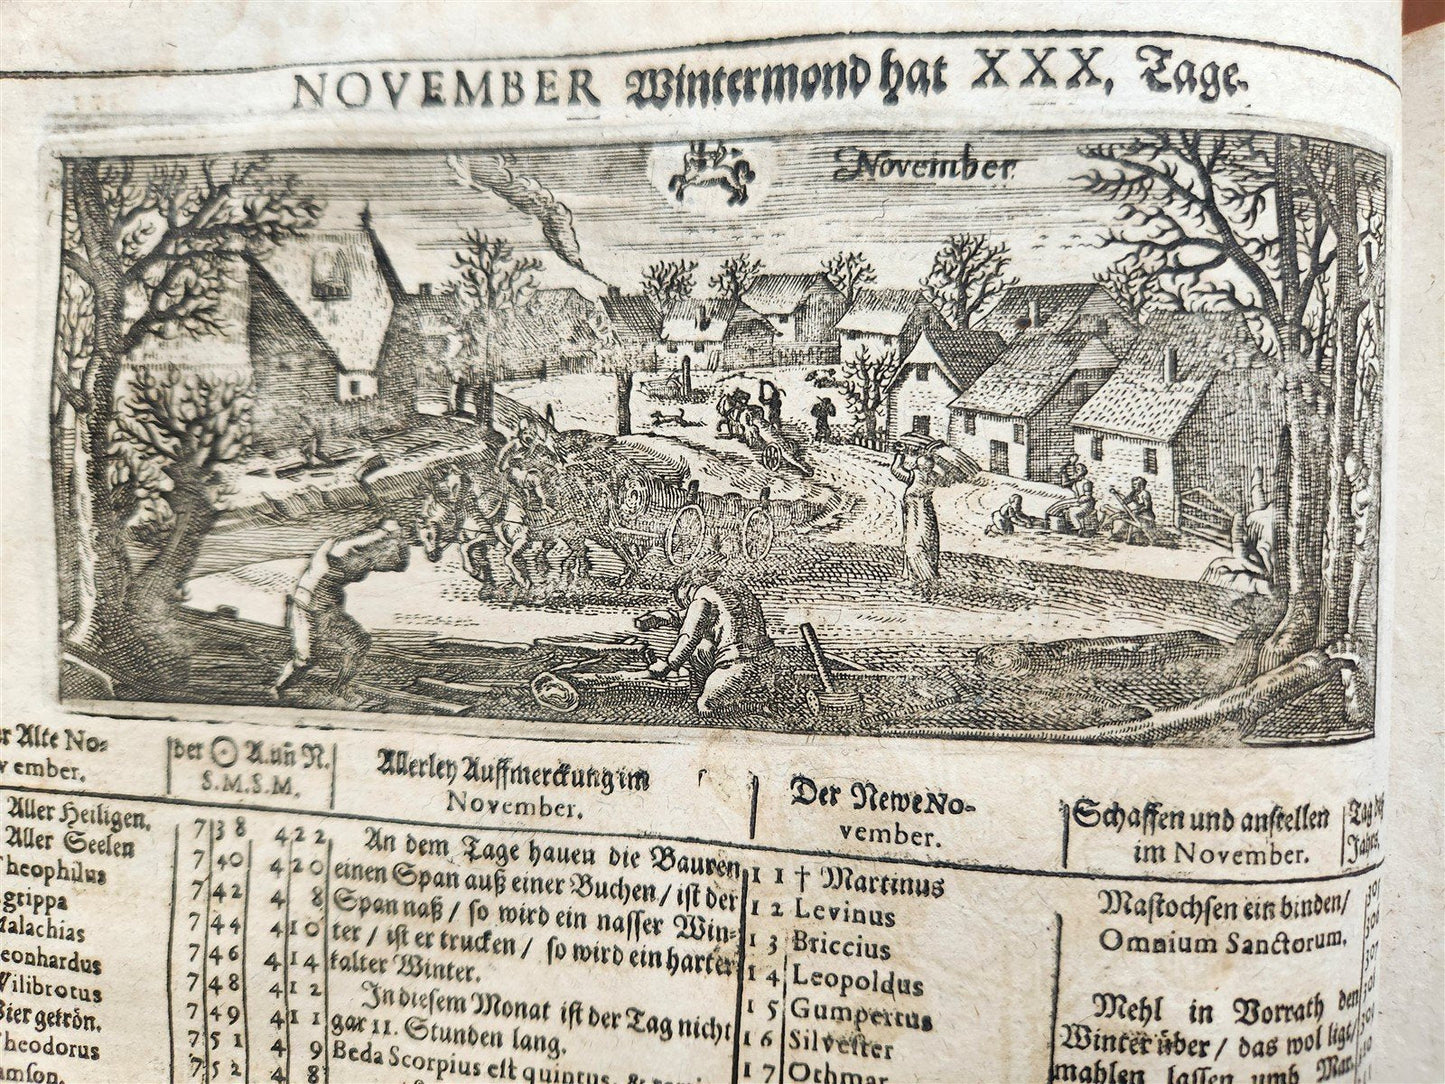 NOVEMBER Wintermond hat XXX, Tage.
November
Alte No-
vember.
Aller Heiligen.
Aller Seelen
Theophilus
Malachias
Leonhardus
Wilibrotus
Vier gekrön.
Theodorus
der ☉ A. uñ N.
S.M.S.M.
7 38 4 22
7 40 4 20
7 42 4 8
7 44 4 10
7 46 4 14
7 48 4 12
7 49 4 11
7 51 4 9
7 52 4 8
Allerley Auffmerckung im
November.
An dem Tage hauen die Bauren
einen Span auß einer Buchen / ist der
Span naß / so wird ein nasser Win-
ter / ist er trucken / so wird ein harter
kalter Winter.
In diesem Monat ist der Tag nicht
gar 11. Stunden lang.
Beda Scorpius est quintus, &
Der Newe No-
vember.
11 † Martinus
12 Levinus
13 Briccius
14 Leopoldus
15 Gumpertus
16 Silvester
17 Othmar
Schaffen und anstellen
im November.
Mastochsen ein binden /
Omnium Sanctorum.
Mehl in Vorrath den
Winter über / das wol ligt /
mahlen lassen umb Mar-
Tag des
Jahrs.
305
306
307